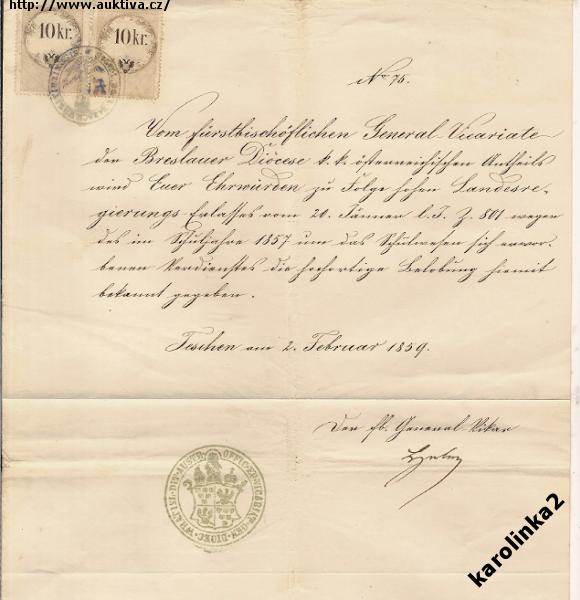 http://www.auktiva.cz/
10 kr. 10 kr.
No 75.
Vom fürstbischöflichen General-Vicariate
der Breslauer Diöcese k. k. österreichischen Antheils
wird Euer Ehrwürden zu Folge hohen Landesre-
gierungs Erlasses vom 20. Jänner l. J. Z. 801 wegen
des im Schuljahre 1857 um das Schulwesen sich erwor-
benen Verdienstes die hochortige Belobung hiemit
bekannt gegeben.
Teschen am 2. Februar 1859.
Der fb. General-Vikar
karolinka2